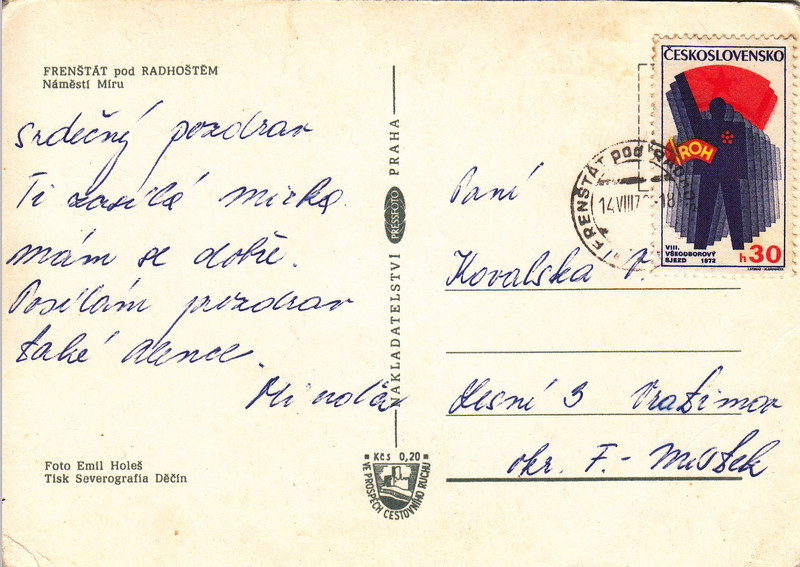 FRENŠTÁT pod RADHOŠTĚM
Náměstí Míru
srdečný pozdrav
Ti zasílá mirka.
mám se dobře.
Posílám pozdrav
také alence.
Foto Emil Holeš
Tisk Severografia Děčín
NAKLADATELSTVÍ PRESSFOTO PRAHA
Kčs 0,20
VE PROSPĚCH CESTOVNÍHO RUCHU
ČESKOSLOVENSKO
ROH
VIII.
VŠEODBOROVÝ
SJEZD 1972
h30
FRENŠTÁT pod
14.VIII.7
Paní
Kovalska P.
Lesní 3 Vratimov
okr. F.-Místek